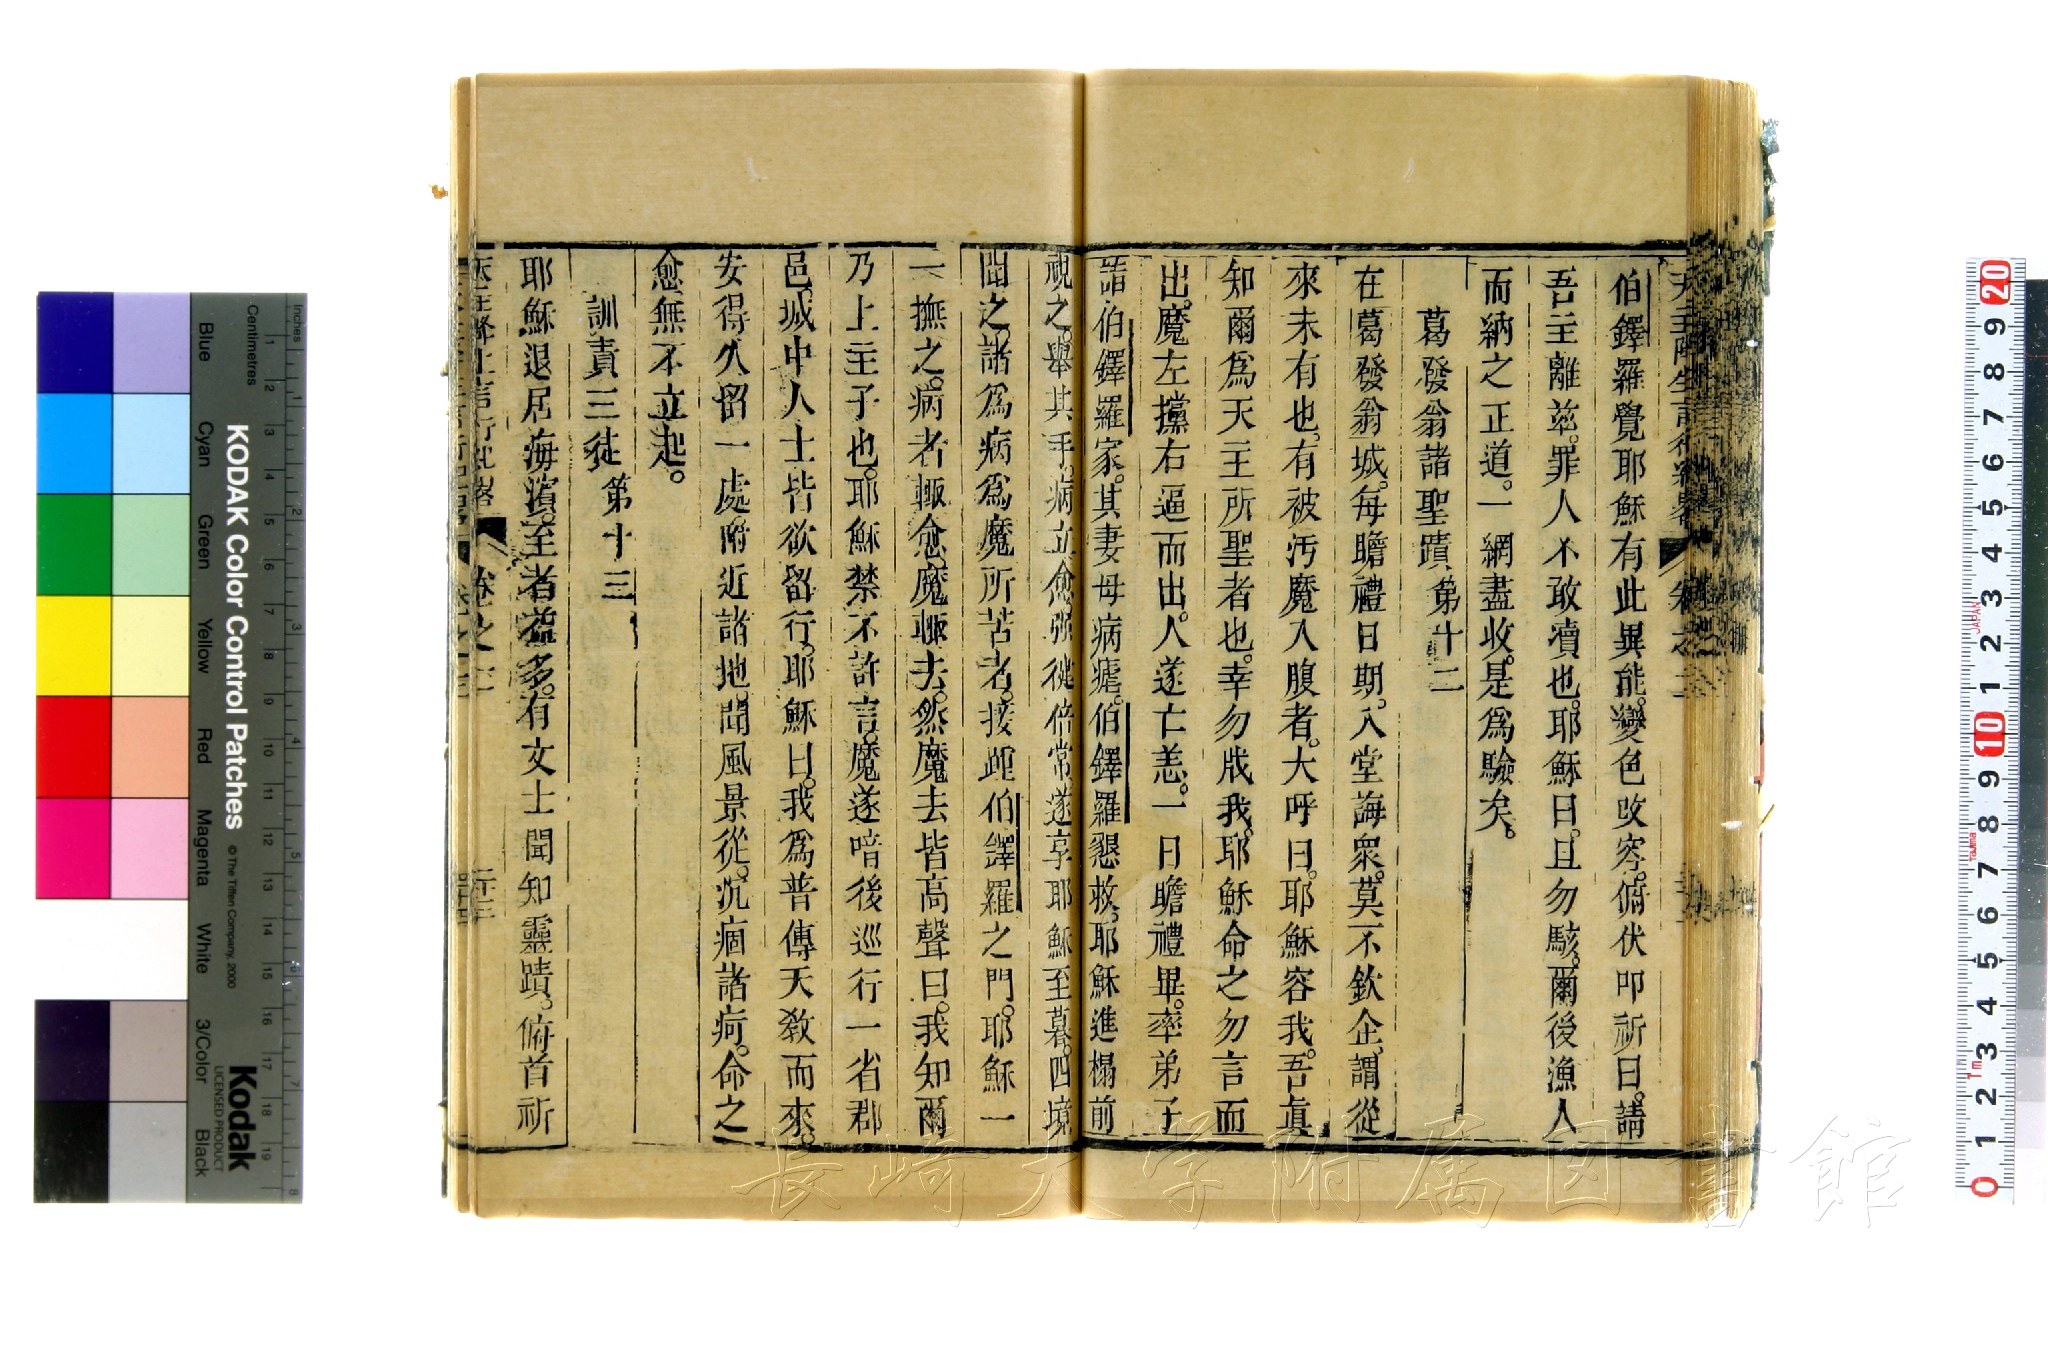 伯鐸羅覺耶穌有此異能。變色改容。俯伏叩祈曰。請
吾主離茲。罪人不敢瀆也。耶穌曰。且勿駭。爾後漁人
而納之正道。一網盡收。是爲驗矣。
葛發翁諸聖蹟 第十二
在葛發翁城。每瞻禮日期。入堂誨衆。莫不欽企。謂從
來未有也。有被汚魔入腹者。大呼曰。耶穌容我。吾眞
知爾爲天主所聖者也。幸勿戕我。耶穌命之勿言而
出。魔左攩右逼而出。人遂亡恙。一日瞻禮畢。率弟子
詣伯鐸羅家。其妻母病瘧。伯鐸羅懇救。耶穌進榻前
視之。舉其手。病立愈。強健倍常。遂享耶穌至暮。四境
聞之。諸爲病爲魔所苦者。接踵伯鐸羅之門。耶穌一
一撫之。病者輒愈。魔輒去。然魔去皆高聲曰。我知爾
乃上主子也。耶穌禁不許言。魔遂喑後巡行一省郡
邑。城中人士皆欲留行。耶穌曰。我爲普傳天敎而來。
安得久留一處。附近諸地。聞風景從。沉痼諸疴。命之
愈。無不立起。
訓責三徒 第十三
耶穌退居海濱。至者益多。有文士聞知靈蹟。俯首祈
天主降生言行紀畧 卷之二
KODAK Color Control Patches
© The Tiffen Company, 2000
Kodak
LICENSED PRODUCT
Inches
Centimetres
Blue
Cyan
Green
Yellow
Red
Magenta
White
3/Color
Black
長崎大学附属図書館
JAPAN
Tajima
1m